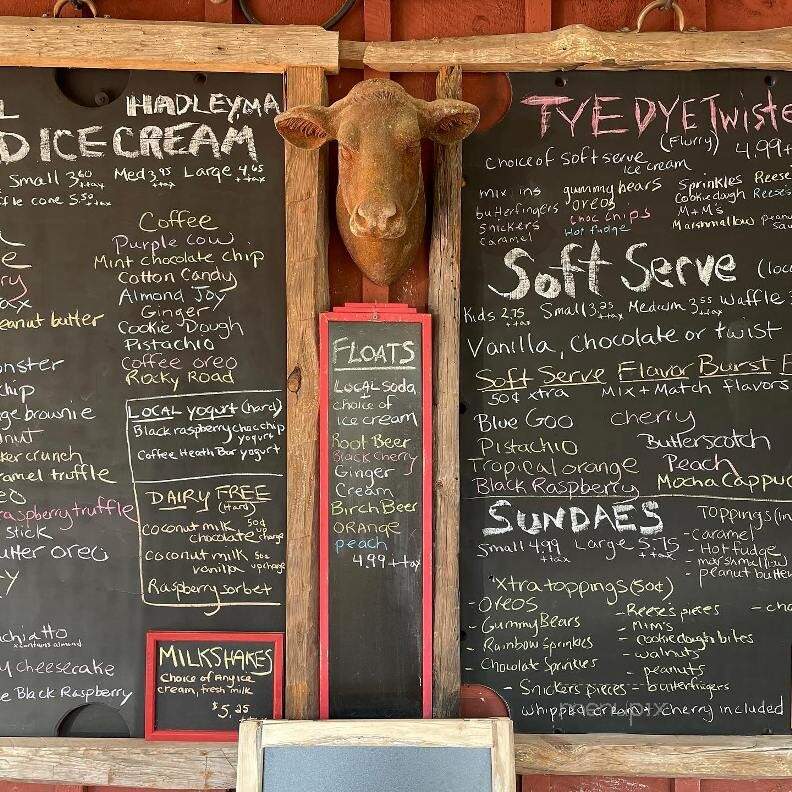 HADLEY MA
ICE CREAM
Small 3.60 +tax Med 3.95 +tax Large 4.65 +tax
cone 5.50 +tax
Coffee
Purple cow
Mint chocolate chip
Cotton Candy
Almond Joy
Ginger
Cookie Dough
Pistachio
Coffee oreo
Rocky Road
peanut butter
brownie
crunch
truffle
raspberry truffle
stick
oreo
contains almond
cheesecake
Black Raspberry
LOCAL yogurt (hard)
Black raspberry choc chip
yogurt
Coffee Heath Bar yogurt
DAIRY FREE
(Hard)
coconut milk 50¢
chocolate up charge
coconut milk 50¢
vanilla upcharge
Raspberry sorbet
MILKSHAKES
Choice of Any ice
cream, fresh milk
FLOATS
LOCAL soda
choice of
ice cream
Root Beer
Black cherry
Ginger
Cream
Birch Beer
ORANGE
peach
4.99 + tax
TYE DYE Twiste
(Flurry) 4.99+
Choice of soft serve
ice cream
mix ins
gummy bears
Sprinkles
Reese
butterfingers
oreos
Cookie dough
Reese's
Snickers
choc chips
M+M's
Caramel
Hot fudge
Marshmallow
Soft Serve
Kids 2.75 +tax Small 3.25 +tax Medium 3.55 +tax Waffle
Vanilla, Chocolate or twist
Soft Serve Flavor Burst
50¢ xtra Mix + Match flavors
Blue Goo cherry
Pistachio Butterscotch
Tropical orange Peach
Black Raspberry Mocha Cappuc
SUNDAES
Small 4.99 +tax Large 5.75 +tax
TOPPINGS
- Caramel
- Hot fudge
- marshmallow
- peanut butter
Xtra toppings (50¢)
- Oreos
- Gummy Bears
- Rainbow Sprinkles
- Chocolate Sprinkles
- Snickers pieces
- Reese's pieces
- M+M's
- cookie dough bites
- walnuts
- peanuts
- butterfingers
whipped cream + cherry included
menupix